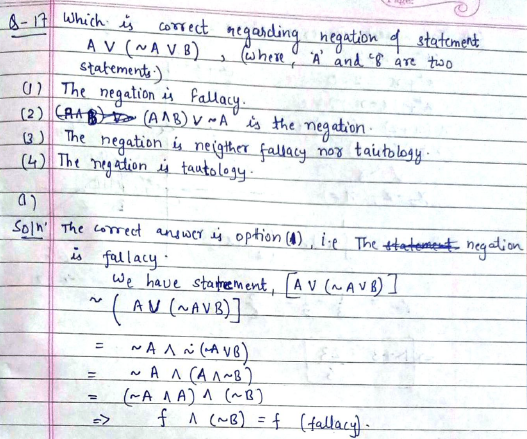 Q-17 Which is correct regarding negation of statement
A ∨ (~A ∨ B) , (where, 'A' and 'B' are two
statements.)
(1) The negation is fallacy.
(2) (A∧B) ∨ ~A is the negation.
(3) The negation is neigther fallacy nor tautology.
(4) The negation is tautology.
Soln' The correct answer is option (1), i.e The negation
is fallacy.
We have statement, [A ∨ (~A ∨ B)]
~ ( A ∨ (~A∨B)]
= ~A ∧ ~ (~A ∨B)
= ~ A ∧ (A ∧~B)
= (~A ∧A) ∧ (~B)
=> f ∧ (~B) = f (fallacy).